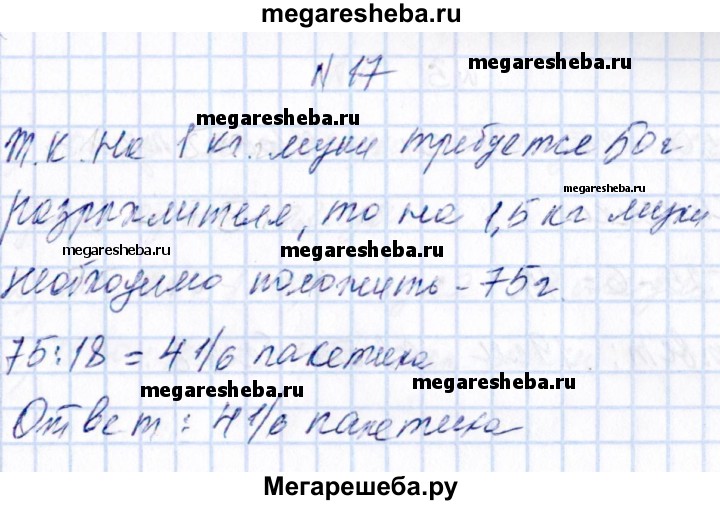 megaresheba.ru
N 17
megaresheba.ru
megaresheba.ru
т.к. на 1 кг. муки требуется 50 г
megaresheba.ru
разрыхлителя, то на 1,5 кг муки
megaresheba.ru
megaresheba.ru
необходимо положить - 75 г.
75:18 = 4 1/6 пакетика
megaresheba.ru
megaresheba.ru
Ответ: 4 1/6 пакетика
Мегарешеба.ру